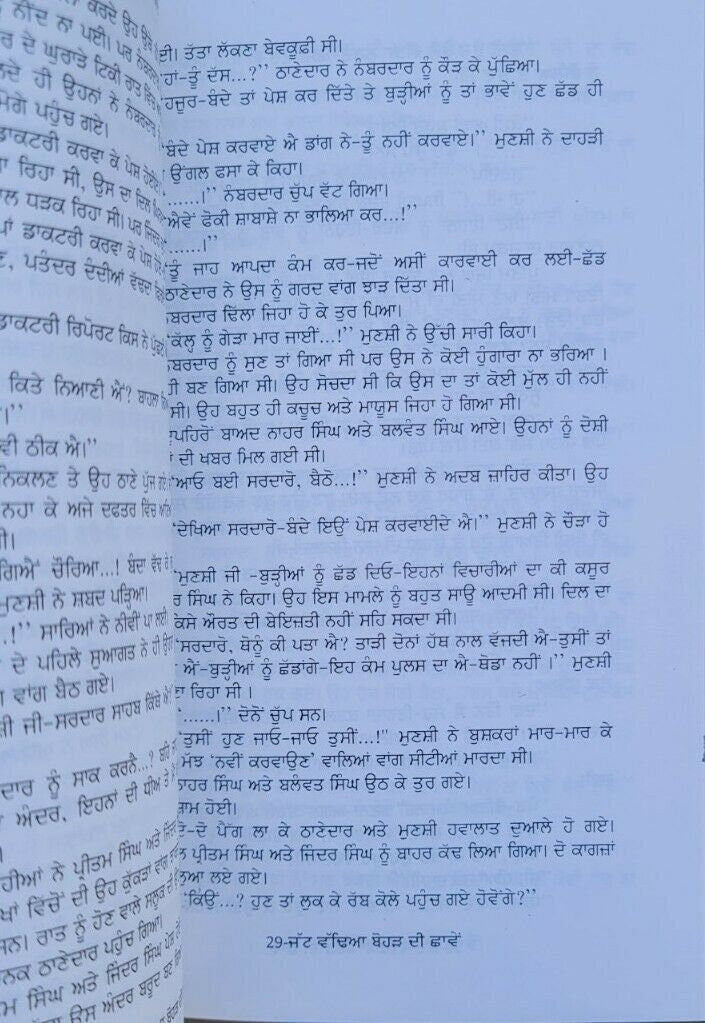 ਕਰਦੇ ਉਹ ਉਰੇ
ਨੀਂਦ ਨਾ ਪਈ। ਪਰ
ਦੇ ਘੁਰਾੜੇ ਟਿਕੀ ਰਾਤ ਵਿੱਚ
ਹੀ ਉਹਨਾਂ ਨੇ ਨੰਬਰਦਾਰ
ਪਹੁੰਚ ਗਏ।
ਡਾਕਟਰੀ ਕਰਵਾ ਕੇ ਪੇਸ਼
ਰਿਹਾ ਸੀ, ਉਸ ਦਾ ਦਿਲ
ਧੜਕ ਰਿਹਾ ਸੀ। ਪਰ
ਡਾਕਟਰੀ ਕਰਵਾ ਕੇ ਪੇਸ਼
ਪਤੰਦਰ ਦੰਦੀਆਂ ਵੱਢਦਾ
ਡਾਕਟਰੀ ਰਿਪੋਰਟ ਕਿਸ ਨੇ
ਕਿਤੇ ਨਿਆਣੀ ਐਂ? ਬਾਹਲਾ
।”
ਠੀਕ ਐ।”
ਨਿਕਲਣ ਤੇ ਉਹ ਠਾਣੇ ਪੁੱਜ ਗਏ
ਨਹਾ ਕੇ ਅਜੇ ਦਫਤਰ ਵਿੱਚ
ਸੀ।
ਗਿਐਂ ਚੌਰਿਆ...! ਬੰਦਾ ਵੱਢ
ਮੁਣਸ਼ੀ ਨੇ ਸ਼ਬਦ ਪੜ੍ਹਿਆ।
.!” ਸਾਰਿਆਂ ਨੇ ਨੀਵੀਂ ਪਾ ਲਈ
ਦੇ ਪਹਿਲੇ ਸੁਆਗਤ ਨੇ ਹੀ
ਵਾਂਗ ਬੈਠ ਗਏ।
ਜੀ-ਸਰਦਾਰ ਸਾਹਬ ਕਿੱਥੇ ਐਂ
ਨੂੰ ਸਾਕ ਕਰਨੈ...?
ਅੰਦਰ, ਇਹਨਾਂ ਦੀ ਧੀਆਂ ਤੇ
ਨੇ ਪ੍ਰੀਤਮ ਸਿੰਘ ਅਤੇ
ਵਿਚੋਂ ਦੀ ਉਹ ਕੁੱਕੜਾਂ ਵਾਂਗ
ਰਾਤ ਨੂੰ ਹੋਣ ਵਾਲੇ ਸਲੂਕ ਦੀ
ਠਾਣੇਦਾਰ ਪਹੁੰਚ ਗਿਆ।
ਸਿੰਘ ਅਤੇ ਜਿੰਦਰ ਸਿੰਘ
ਉਸ ਅੰਦਰ ਬਰੂਦ ਬਣ
ਈ। ਤੱਤਾ ਲੱਕਣਾ ਬੇਵਕੂਫੀ ਸੀ।
ਹਾਂ-ਤੂੰ ਦੱਸ...?” ਠਾਣੇਦਾਰ ਨੇ ਨੰਬਰਦਾਰ ਨੂੰ ਕੌੜ ਕੇ ਪੁੱਛਿਆ।
ਹਜੂਰ-ਬੰਦੇ ਤਾਂ ਪੇਸ਼ ਕਰ ਦਿੱਤੇ ਤੇ ਬੁੜ੍ਹੀਆਂ ਨੂੰ ਤਾਂ ਭਾਵੇਂ ਹੁਣ ਛੱਡ ਹੀ
‘ਬੰਦੇ ਪੇਸ਼ ਕਰਵਾਏ ਐ ਡਾਂਗ ਨੇ-ਤੂੰ ਨਹੀਂ ਕਰਵਾਏ।” ਮੁਣਸ਼ੀ ਨੇ ਦਾਹੜੀ
ਉਂਗਲ ਫਸਾ ਕੇ ਕਿਹਾ।
......।” ਨੰਬਰਦਾਰ ਚੁੱਪ ਵੱਟ ਗਿਆ।
ਐਵੇਂ ਫੋਕੀ ਸ਼ਾਬਾਸ਼ੇ ਨਾ ਭਾਲਿਆ ਕਰ...!”
......।”
ਤੂੰ ਜਾਹ ਆਪਦਾ ਕੰਮ ਕਰ-ਜਦੋਂ ਅਸੀਂ ਕਾਰਵਾਈ ਕਰ ਲਈ-ਛੱਡ
ਠਾਣੇਦਾਰ ਨੇ ਉਸ ਨੂੰ ਗਰਦ ਵਾਂਗ ਝਾੜ ਦਿੱਤਾ ਸੀ।
ਬਰਦਾਰ ਢਿੱਲਾ ਜਿਹਾ ਹੋ ਕੇ ਤੁਰ ਪਿਆ।
‘ਕੱਲ੍ਹ ਨੂੰ ਗੇੜਾ ਮਾਰ ਜਾਈਂ...!” ਮੁਣਸ਼ੀ ਨੇ ਉੱਚੀ ਸਾਰੀ ਕਿਹਾ।
ਬਰਦਾਰ ਨੂੰ ਸੁਣ ਤਾਂ ਗਿਆ ਸੀ ਪਰ ਉਸ ਨੇ ਕੋਈ ਹੁੰਗਾਰਾ ਨਾ ਭਰਿਆ ।
ਹੀ ਬਣ ਗਿਆ ਸੀ। ਉਹ ਸੋਚਦਾ ਸੀ ਕਿ ਉਸ ਦਾ ਤਾਂ ਕੋਈ ਮੁੱਲ ਹੀ ਨਹੀਂ
ਸੀ। ਉਹ ਬਹੁਤ ਹੀ ਕਦੂਚ ਅਤੇ ਮਾਯੂਸ ਜਿਹਾ ਹੋ ਗਿਆ ਸੀ।
ਦੁਪਹਿਰੋਂ ਬਾਅਦ ਨਾਹਰ ਸਿੰਘ ਅਤੇ ਬਲਵੰਤ ਸਿੰਘ ਆਏ। ਉਹਨਾਂ ਨੂੰ ਦੋਸ਼ੀ
ਦੀ ਖਬਰ ਮਿਲ ਗਈ ਸੀ।
‘ਆਓ ਬਈ ਸਰਦਾਰੋ, ਬੈਠੋ...!” ਮੁਣਸ਼ੀ ਨੇ ਅਦਬ ਜ਼ਾਹਿਰ ਕੀਤਾ। ਉਹ
‘ਦੇਖਿਆ ਸਰਦਾਰੋ-ਬੰਦੇ ਇਉਂ ਪੇਸ਼ ਕਰਵਾਈਦੇ ਐ।” ਮੁਣਸ਼ੀ ਨੇ ਚੌੜਾ ਹੋ
‘ਮੁਣਸ਼ੀ ਜੀ -ਬੁੜ੍ਹੀਆਂ ਨੂੰ ਛੱਡ ਦਿਓ-ਇਹਨਾਂ ਵਿਚਾਰੀਆਂ ਦਾ ਕੀ ਕਸੂਰ
ਰ ਸਿੰਘ ਨੇ ਕਿਹਾ। ਉਹ ਇਸ ਮਾਮਲੇ ਨੂੰ ਬਹੁਤ ਸਾਊ ਆਦਮੀ ਸੀ। ਦਿਲ ਦਾ
ਕਿਸੇ ਔਰਤ ਦੀ ਬੇਇਜ਼ਤੀ ਨਹੀਂ ਸਹਿ ਸਕਦਾ ਸੀ।
‘ਸਰਦਾਰੋ, ਥੋਨੂੰ ਕੀ ਪਤਾ ਐ? ਤਾੜੀ ਦੋਨਾਂ ਹੱਥ ਨਾਲ ਵੱਜਦੀ ਐ-ਤੁਸੀਂ ਤਾਂ
ਐਂ-ਬੁੜ੍ਹੀਆਂ ਨੂੰ ਛੱਡਾਂਗੇ-ਇਹ ਕੰਮ ਪੁਲਸ ਦਾ ਐ-ਥੋਡਾ ਨਹੀਂ ।” ਮੁਣਸ਼ੀ
ਣਾ ਰਿਹਾ ਸੀ ।
‘......।” ਦੋਨੋਂ ਚੁੱਪ ਸਨ।
‘ਤੁਸੀਂ ਹੁਣ ਜਾਓ-ਜਾਓ ਤੁਸੀਂ...!" ਮੁਣਸ਼ੀ ਨੇ ਬੁਸ਼ਕਰਾਂ ਮਾਰ-ਮਾਰ ਕੇ
ਮੱਝ ‘ਨਵੀਂ ਕਰਵਾਉਣ’ ਵਾਲਿਆਂ ਵਾਂਗ ਸੀਟੀਆਂ ਮਾਰਦਾ ਸੀ।
ਨਾਹਰ ਸਿੰਘ ਅਤੇ ਬਲੰਵਤ ਸਿੰਘ ਉਠ ਕੇ ਤੁਰ ਗਏ।
ਸ਼ਾਮ ਹੋਈ।
ਦੋ-ਦੋ ਪੈੱਗ ਲਾ ਕੇ ਠਾਣੇਦਾਰ ਅਤੇ ਮੁਣਸ਼ੀ ਹਵਾਲਾਤ ਦੁਆਲੇ ਹੋ ਗਏ।
ਲ ਪ੍ਰੀਤਮ ਸਿੰਘ ਅਤੇ ਜਿੰਦਰ ਸਿੰਘ ਨੂੰ ਬਾਹਰ ਕੱਢ ਲਿਆ ਗਿਆ। ਦੋ ਕਾਗਜ਼ਾਂ
ਲੁਆ ਲਏ ਗਏ।
‘ਕਿਉਂ...? ਹੁਣ ਤਾਂ ਲੁਕ ਕੇ ਰੱਬ ਕੋਲੇ ਪਹੁੰਚ ਗਏ ਹੋਵੋਂਗੇ?”
29-ਜੱਟ ਵੱਢਿਆ ਬੋਹੜ ਦੀ ਛਾਵੇਂ